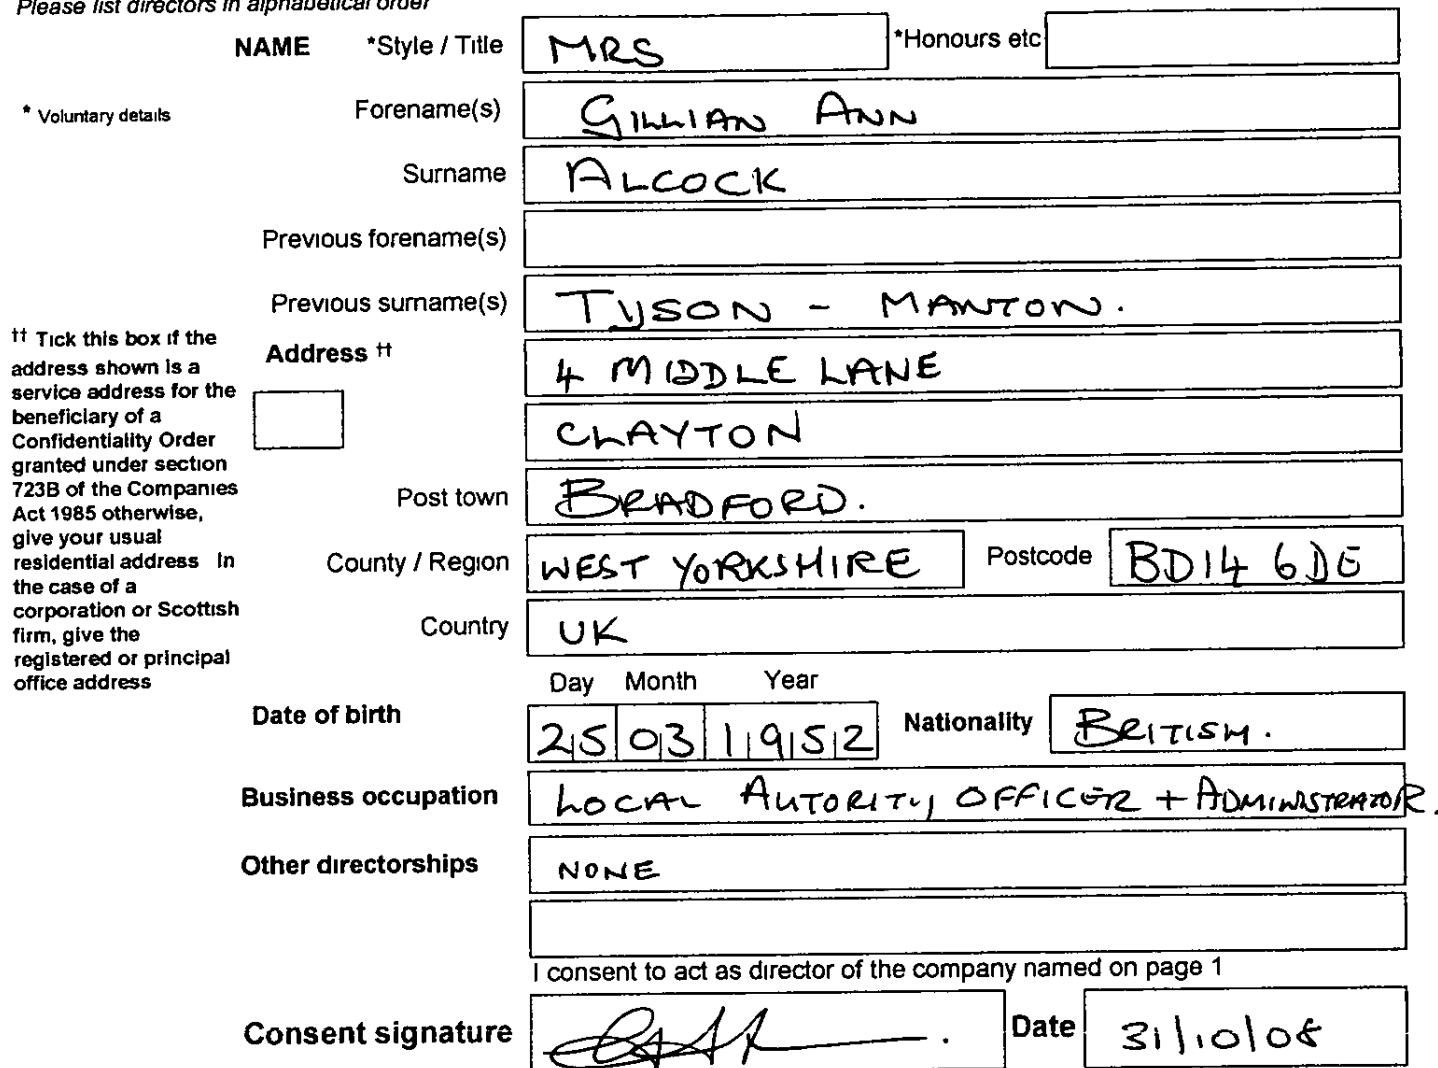 Please list directors in alphabetical order
NAME *Style / Title MRS *Honours etc
* Voluntary details Forename(s) GILLIAN ANN
Surname ALCOCK
Previous forename(s)
Previous surname(s) TYSON - MANTON.
†† Tick this box if the
address shown is a
service address for the
beneficiary of a
Confidentiality Order
granted under section
723B of the Companies
Act 1985 otherwise,
give your usual
residential address In
the case of a
corporation or Scottish
firm, give the
registered or principal
office address
Address †† 4 MIDDLE LANE
CLAYTON
Post town BRADFORD.
County / Region WEST YORKSHIRE Postcode BD14 6DE
Country UK
Day Month Year
Date of birth 25 03 1952 Nationality BRITISH.
Business occupation LOCAL AUTORITY OFFICER + ADMINISTRATOR.
Other directorships NONE
I consent to act as director of the company named on page 1
Consent signature Date 31/10/08